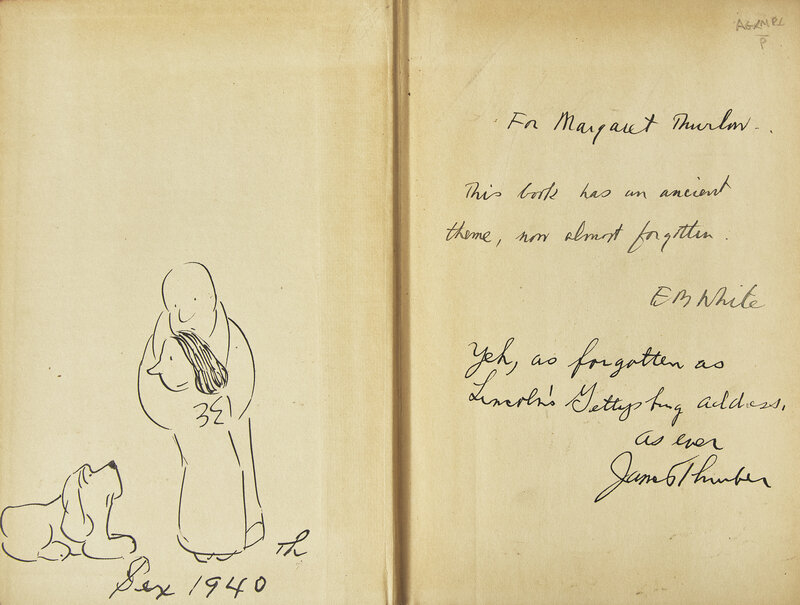 Th
Sex 1940
For Margaret Thurlow.
This book has an ancient
theme, now almost forgotten.
E B White
Yeh, as forgotten as
Lincoln's Gettysburg address.
as ever
James Thurber